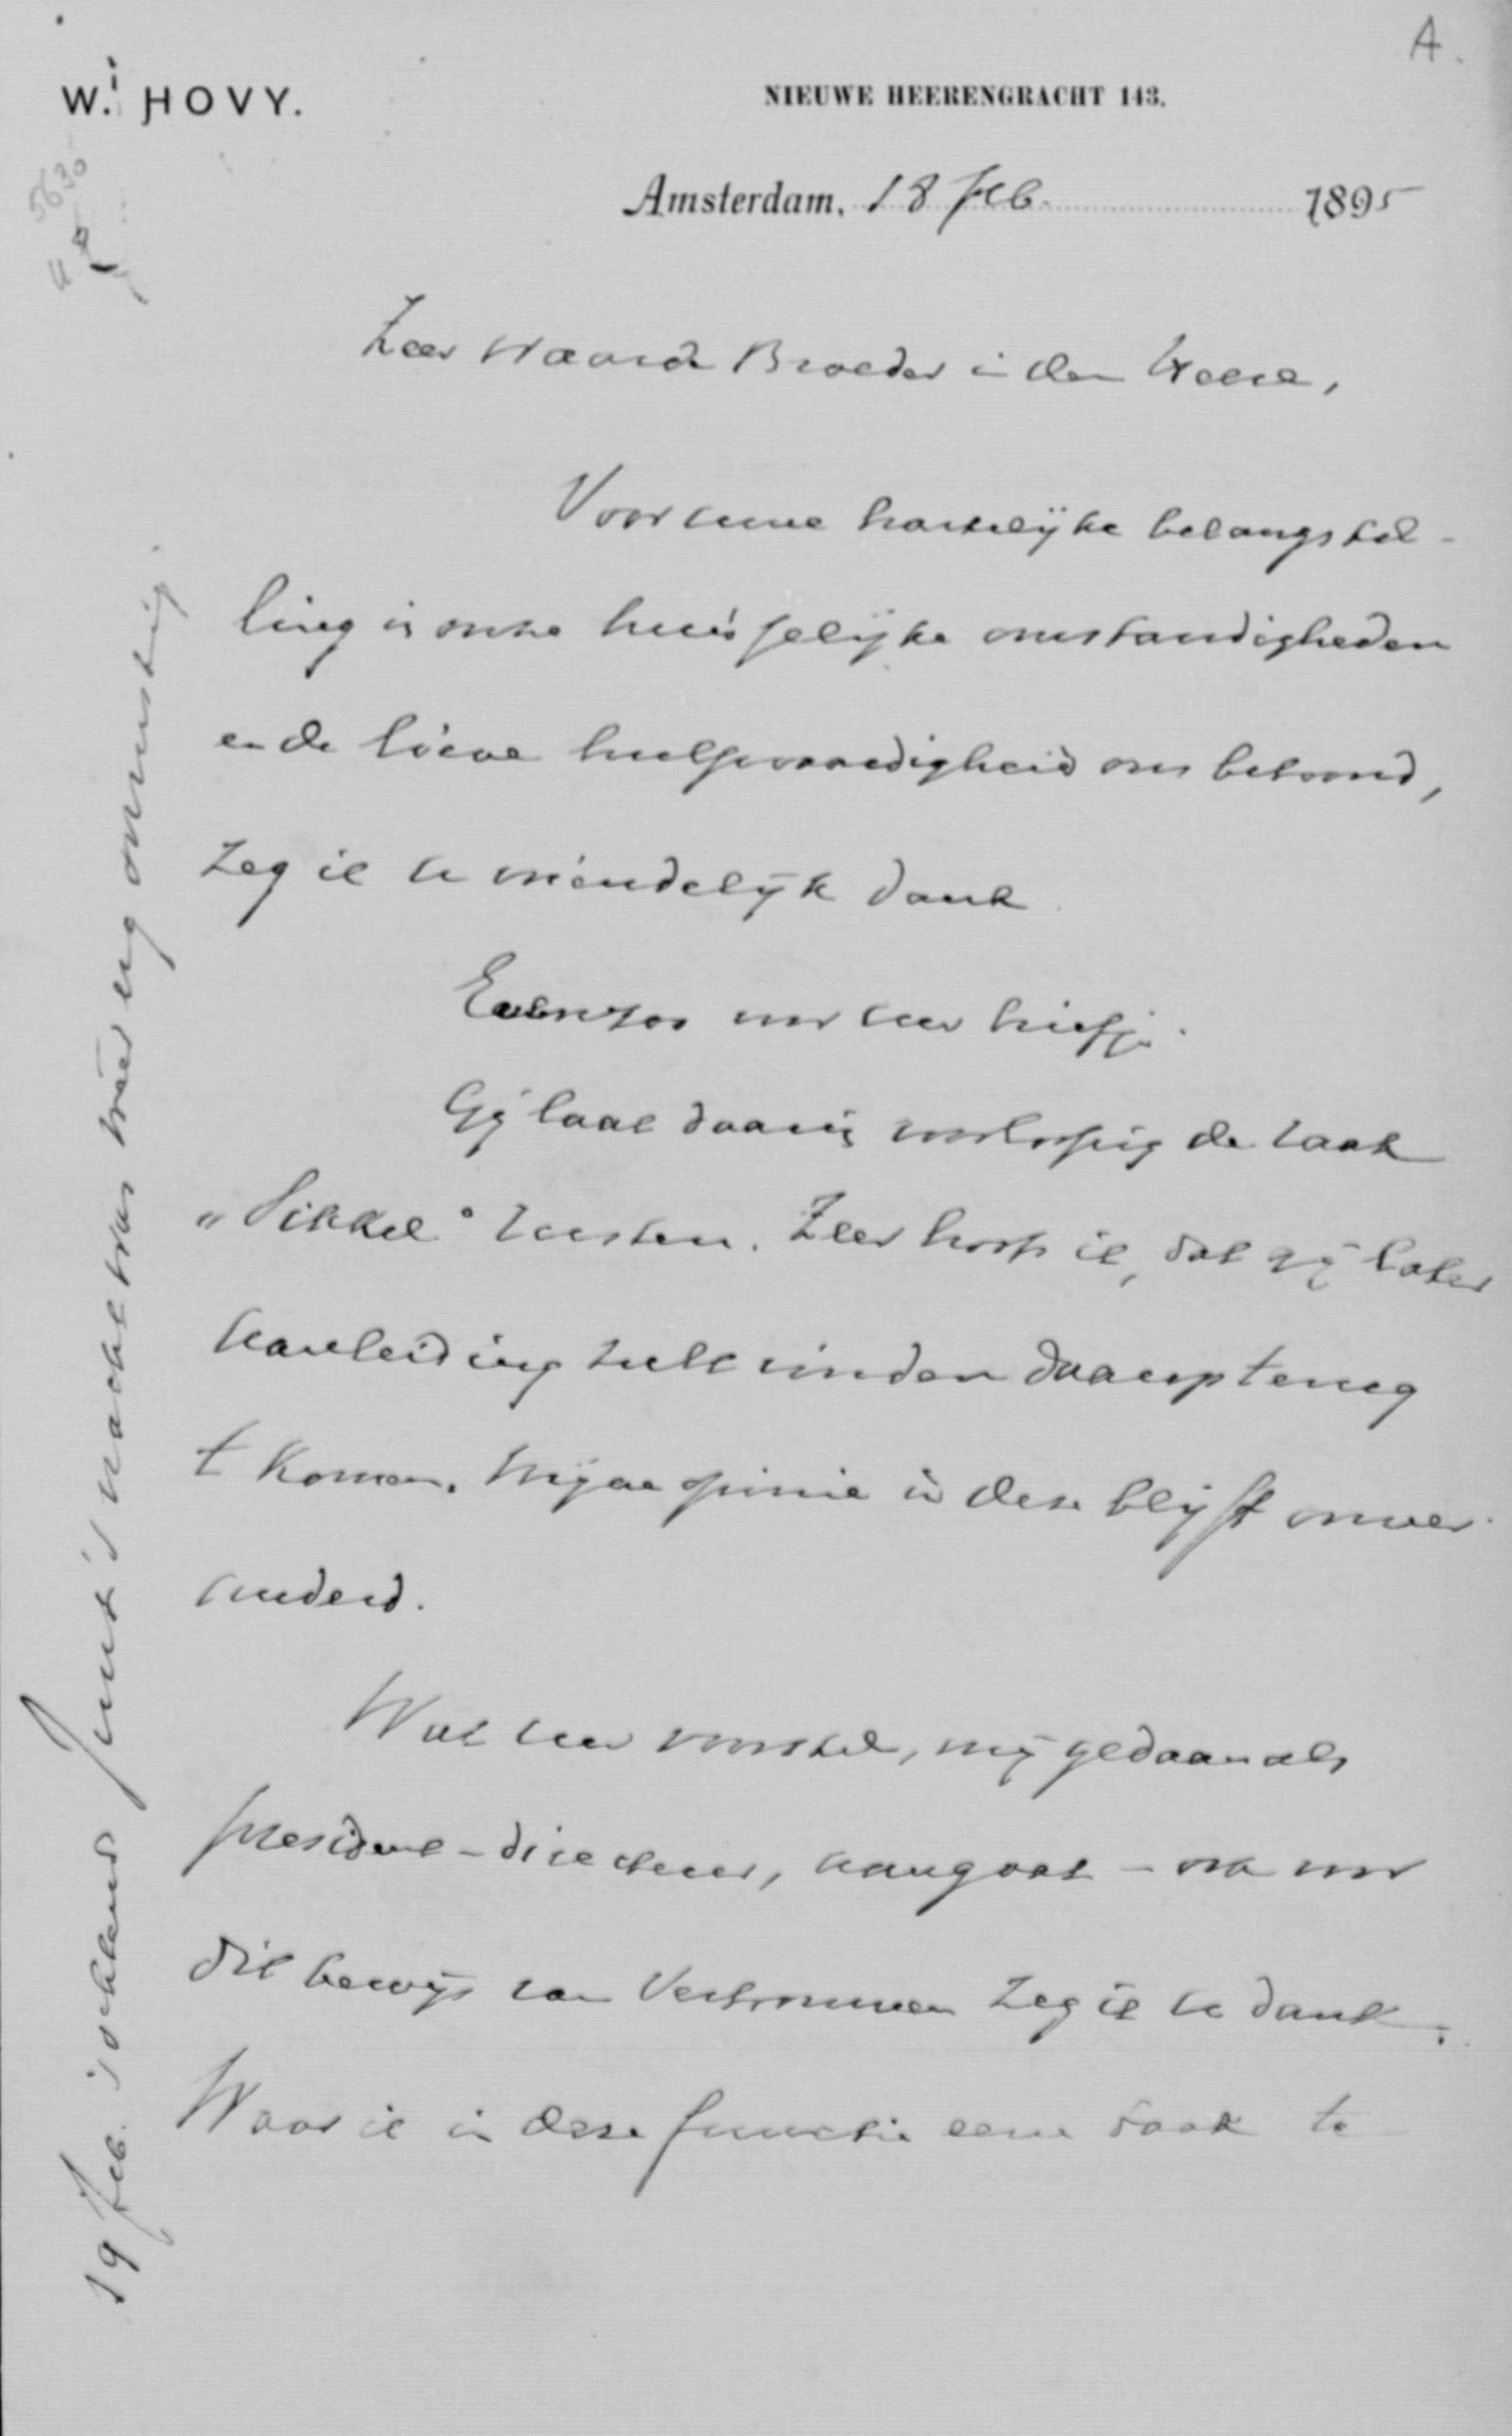 A.
W. HOVY.
NIEUWE HEERENGRACHT 143.
5630
Amsterdam, 18 Feb. 1895
Zeer Waarde Broeder in den Heere,
Voor uwe hartelijke belangstel-
ling in onze huisselijke omstandigheden
en de lieve hulpvaardigheid ons betoond,
zeg ik u vriendelijk dank.
Evenzoo voor uw briefje.
Gij laat daarin voorloopig de zaak
"Sikkel" rusten. Zeer hoop ik, dat gij later
aanleiding zult vinden daarop terug
te komen. Mijne opinie in deze blijft onver-
anderd.
Wat uw voorstel, mij gedaan als
president-directeur, aangaat – ook voor
dit bewijs van Vertrouwen zeg ik u dank.
Waar ik in deze functie eene taak te
19 Feb. ochtend nacht was weer erg onrustig.